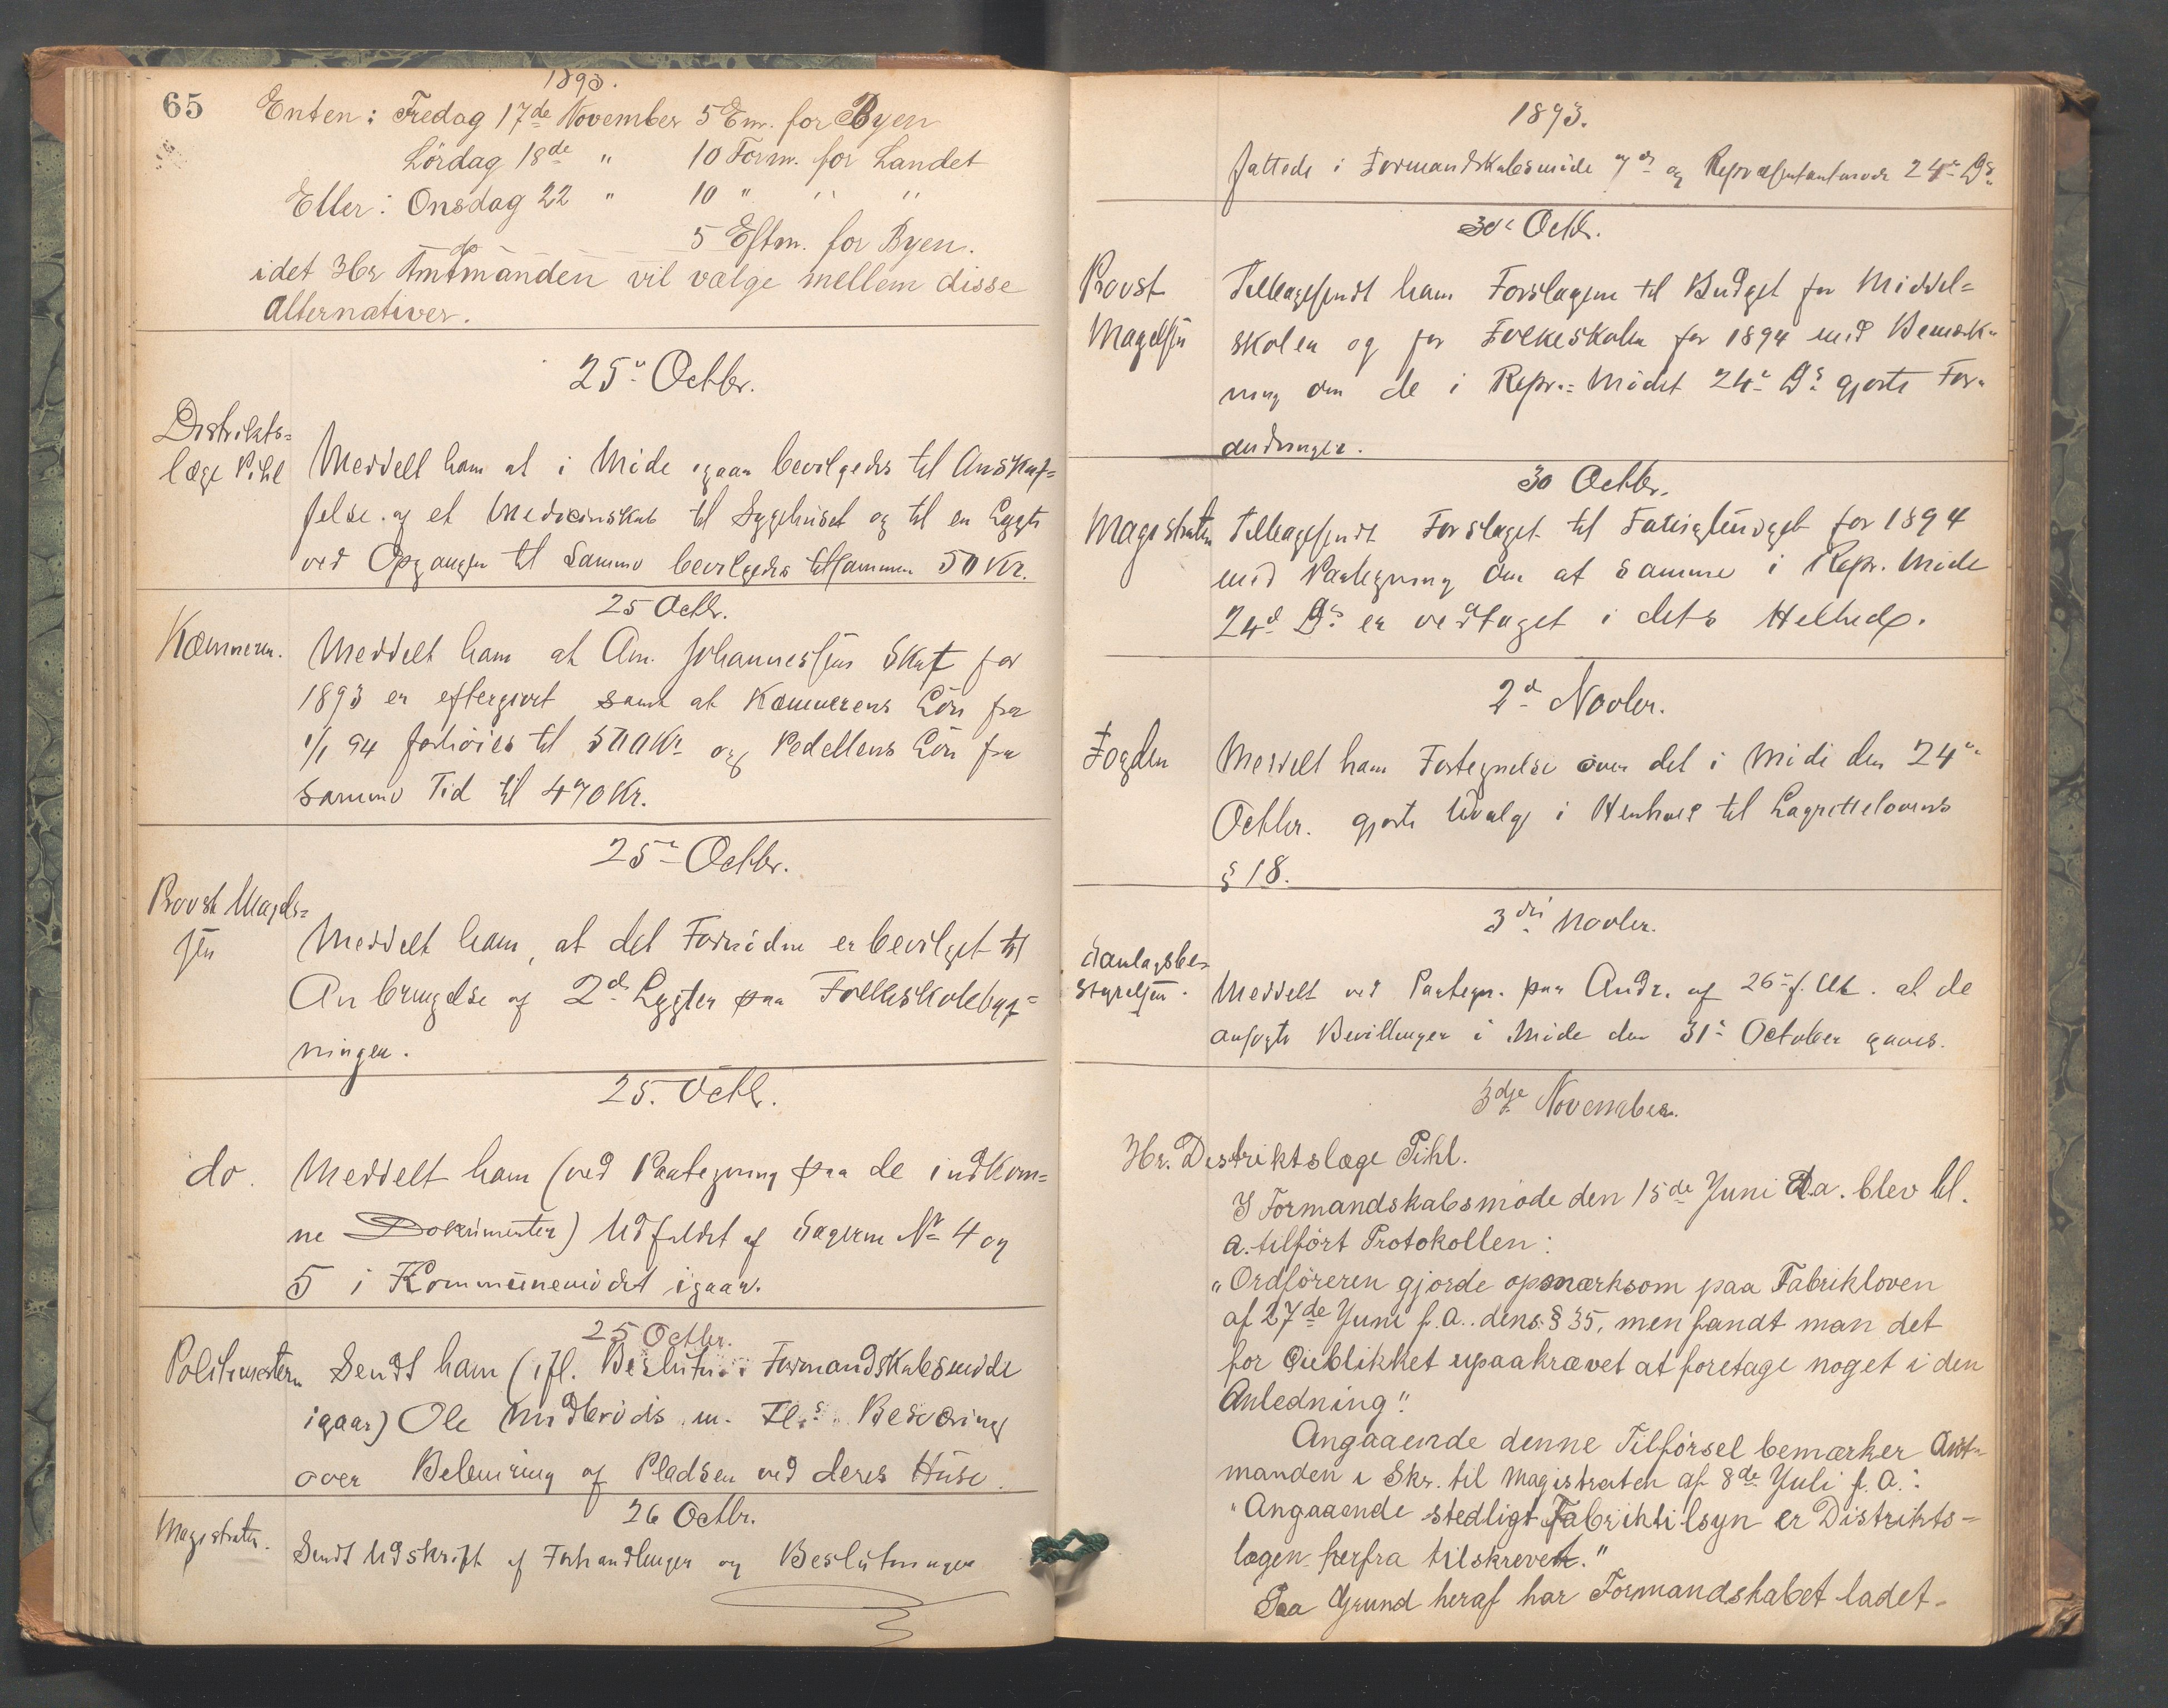 65
1893.
Enten: Fredag 17de November 5 Em. for Byen
Lördag 18de " 10 Form. for Landet
Eller: Onsdag 22 " 10 " " "
5 Eftm. for Byen.
idet Hr Amtmanden vil vælge mellem disse
Alternativer.
25de Octbr.
Distrikts=
læge Pihl
Meddelt ham at i Möde igaar bevilgedes til Anskaf=
felse af et Medicinskab til Sygehuset og til en Lygte
ved Opgangen til Samme bevilgedes tilsammen 50 Kr.
25 Octbr.
Kæmneren.
Meddelt ham at Am. Johannessens Skat for
1893 er eftergivet samt at Kæmnerens Lön fra
1/1 94 forhöies til 500 Kr og Pedellens Lön fra
samme Tid til 470 Kr.
25de Octbr.
Provst Magels=
sen
Meddelt ham, at det Fornödne er bevilget til
Anbringelse af 2de Lygter paa Folkeskolebyg=
ningen.
25. Octbr.
do.
Meddelt ham (ved Paategning paa de indkom=
ne Dokumenter) Udfaldet af Sagerne No 4 og
5 i Kommunemödet igaar.
25 Octbr.
Politimesteren
Sendt ham (ifl. Beslutn. i Formandskabsmöde
igaar) Ole Midbröds m. Fl.s Besværing
over Beleiring af Pladsen ved deres Huse.
26 Octbr.
Magistraten.
Sendt Udskrift af Forhandlinger og Beslutninger
1893.
fattede i Formandskabsmöde og Repræsentantmöde 24de Ds.
30te Octbr.
Provst
Magelssen
Tilbagesendt ham Forslagene til Budget for Middel=
skolen og for Folkeskolen for 1894 med Bemærk=
ning om de i Repr.=Mödet 24de Ds gjorte For=
andringer.
30 Octbr.
Magistraten
Tilbagesendt Forslaget til Fattigbudget for 1894
med Paategning om at samme i Repr. Möde
24de Ds er vedtaget i dets Helhed.
2den Novbr.
Fogden
Meddelt ham Fortegnelse over det i Möde den 24de
Octbr. gjorte Udvalg i Henhold til Lagrettelovens
§ 18.
3die Novbr.
Samlagsbe=
styrelsen.
Meddelt ved Paategn. paa Andr. af 26de f. M. at de
ansøgte Bevillinger i Möde den 31te October gaves.
3dje November.
Hr. Distriktslæge Pihl.
I Formandskabsmöde den 15de Juni d.a. blev bl.
a. tilfört Protokollen:
"Ordföreren gjorde opmærksom paa Fabrikloven
af 27de Juni f.A. dens § 35, men fandt man det
for Öieblikket upaakrævet at foretage noget i den
Anledning".
Angaaende denne Tilförsel bemærker Amt=
manden i Skr. til Magistraten af 8de Juli f.A.:
"Angaaende stedligt Fabriktilsyn er Distrikts=
lægen herfra tilskrevet."
Paa Grund heraf har Formandskabet ladet=